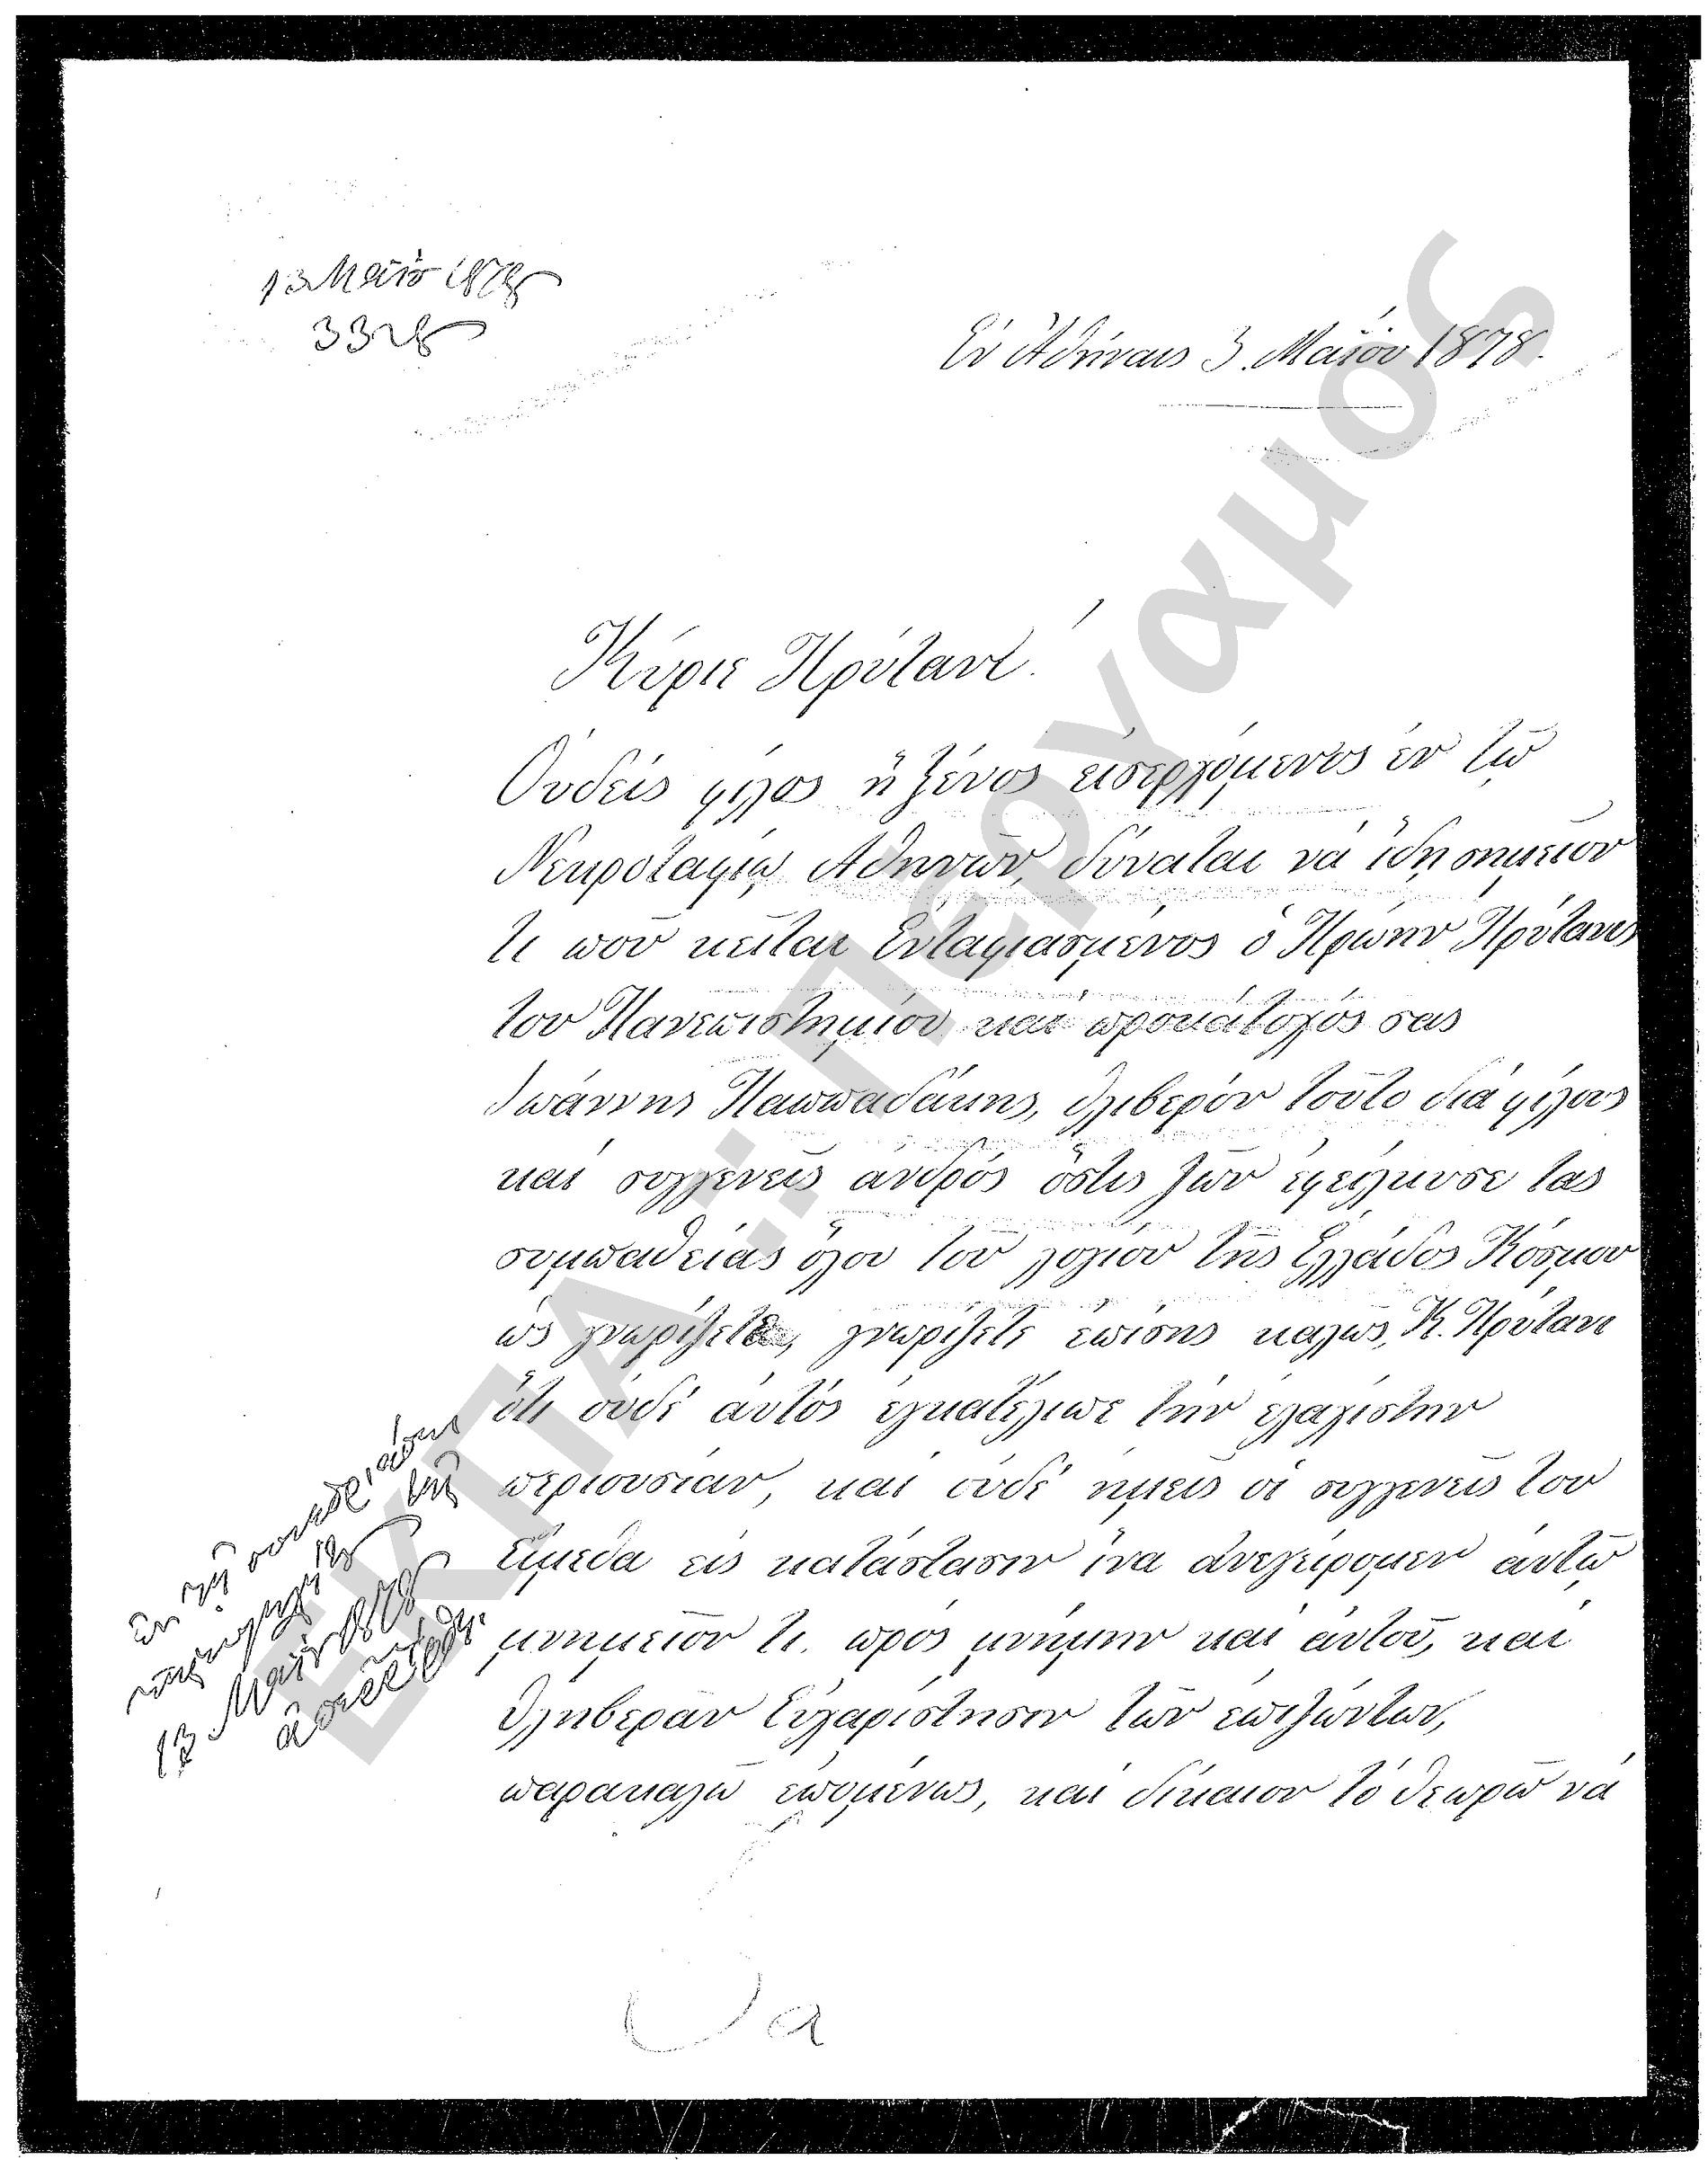 13 Μαΐου 1878
3328
Ἐν Ἀθήναις 3. Μαΐου 1878.
Κύριε Πρύτανι!
Οὐδείς φίλος ἤ ξένος εἰσερχόμενος ἐν τῷ
Νεκροταφίῳ Ἀθηνῶν, δύναται νά ἴδῃ σημεῖον
τι ποῦ κεῖται Ἐνταφιασμένος ὁ Πρώην Πρύτανις
του Πανεπιστημίου και προκάτοχός σας
Ἰωάννης Παππαδάκης, θλιβερόν τοῦτο διά φίλους
καί συγγενεῖς ἀνδρός ὅστις ζῶν ἐφείλκυσε τας
συμπαθείας ὅλου τοῦ λογίου τῆς Ἑλλάδος Κόσμου
ὡς γνωρίζετε, γνωρίζετε ἐπίσης καλῶς, Κ. Πρύτανι
ὅτι οὐδέ αὐτός ἐγκατέλιπε τήν ἐλαχίστην
περιουσίαν, και οὐδέ ἡμεῖς οἱ συγγενεῖς του
εἴμεθα εἰς κατάστασιν ἵνα ἀνεγείρομεν ἀυτῷ
μνημεῖον τι. πρός μνήμην καί ἀυτοῦ, καί
θληβεράν Ἐυχαρίστησιν τῶν ἐπιζώντων,
παρακαλῶ ἑπομένως, καί δίκαιον τό θεωρῶ νά
Ἐν τῇ συνεδριάσει
τῆς
13 Μαΐου 1878
α
ΕΚΠΑ::Πέργαμος